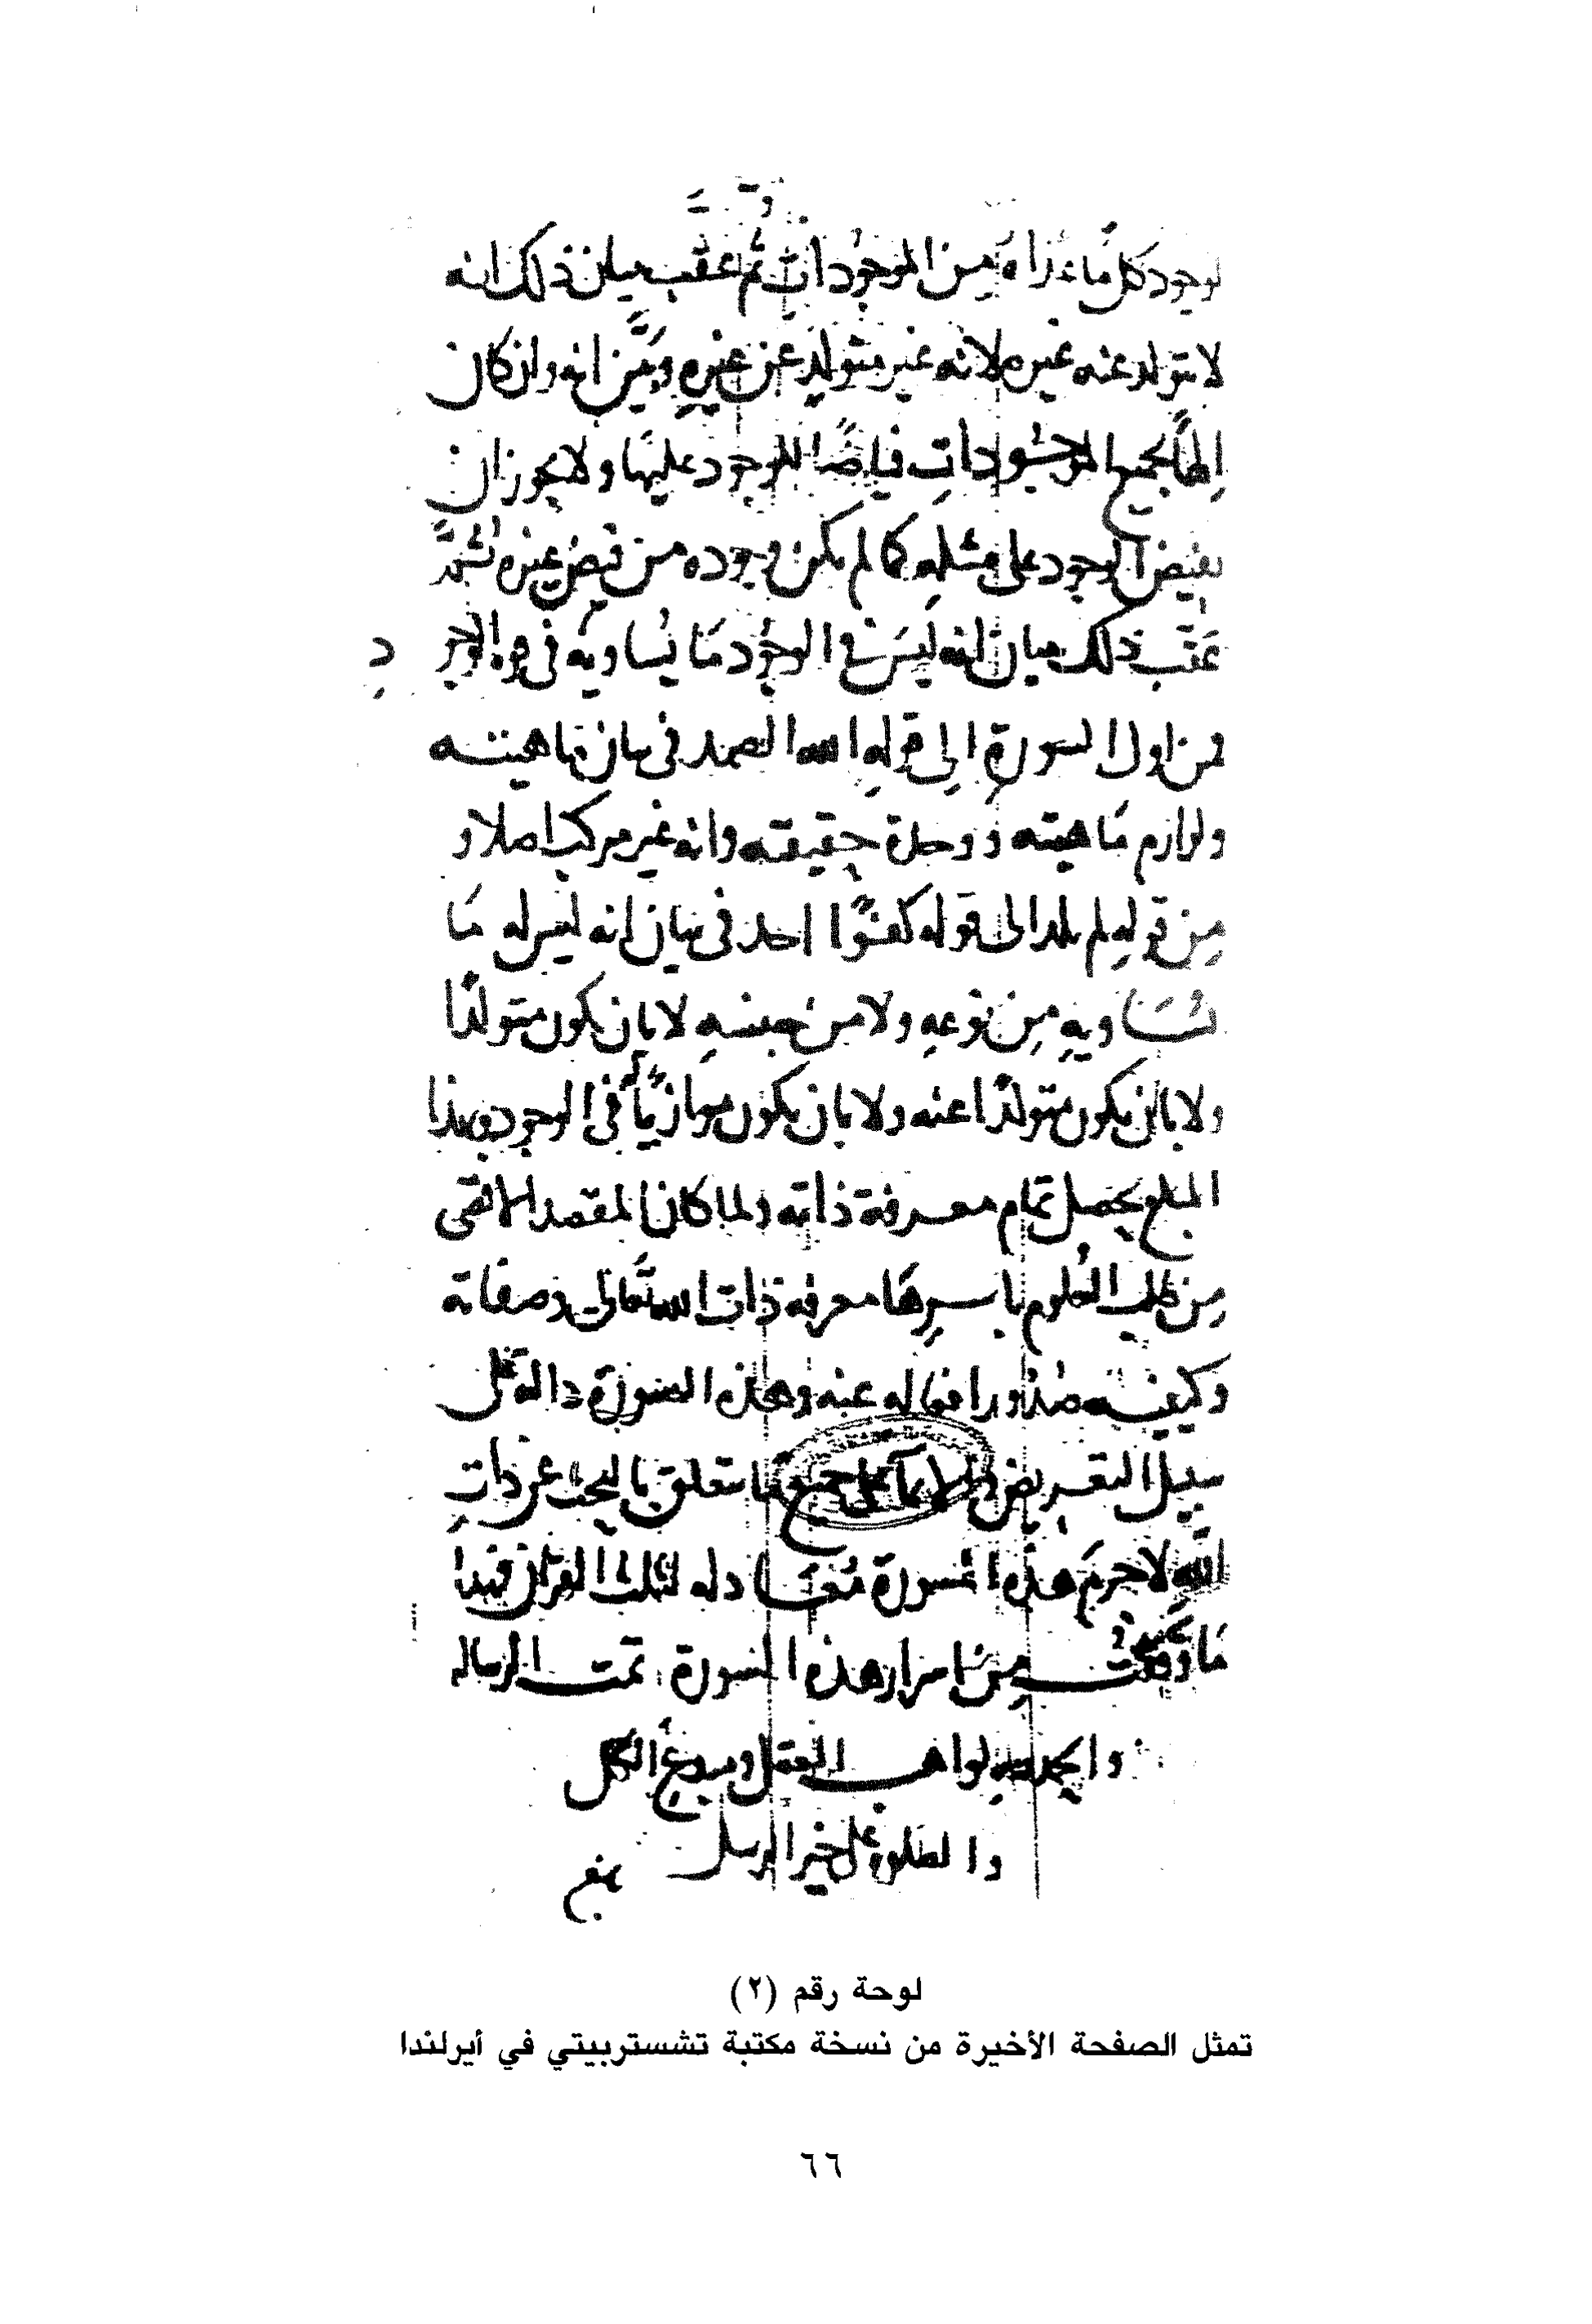 لوجود كل ما عداه من الموجودات ثم عقب ببيان ذلك انه
لا يتولد عنه غيره لانه غير متولد عن غيره وبين انه وان كان
الها لجميع الموجودات فياضا للوجود عليها ولا يجوز ان
يفيض الوجود على مثله كما لم يكن وجوده من فيض غيره ثم
عقب ذلك ببيان انه ليس في الوجود ما يساويه في قوة الوجود
فمن اول السورة الى قوله الله الصمد في بيان ماهيته
ولوازم ماهيته ووحدة حقيقته وانه غير مركب اصلا و
من قوله لم يلد الى قوله كفوًا احد في بيان انه ليس له ما
يساويه من نوعه ولا من جنسه لا بان يكون متولدًا
ولا بان يكون متولدًا عنه ولا بان يكون موازيًا في الوجود وبهذا
المبلغ يحصل تمام معرفة ذاته ولما كان المقصد الاقصى
من طلب العلوم باسرها معرفة ذات الله تعالى وصفاته
وكيفية صدور افعاله عنه وهذه السورة دالة على
سبيل التعريض والايماء على جميع ما يتعلق بالبحث عن ذات
الله لا جرم هذه السورة معادلة لثلث القران فهذا
ما وقفت من اسرار هذه السورة تمت الرسالة
والحمد لله لواهب العقل ومبدع الكل
والصلوة على خير الرسل
لوحة رقم (٢)
تمثل الصفحة الأخيرة من نسخة مكتبة تشستربيتي في أيرلندا
٦٦